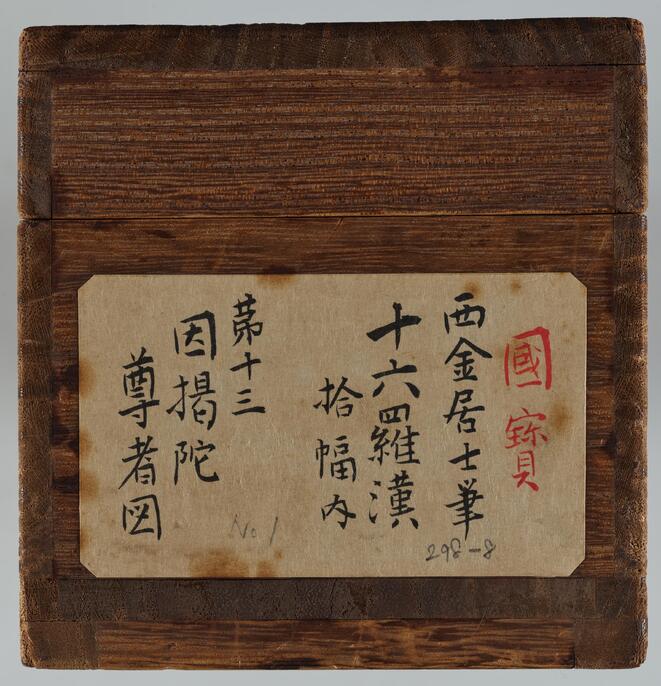 國寳
西金居士筆
十六羅漢
拾幅内
第十三
因掲陀
尊者図
No 1
298-8